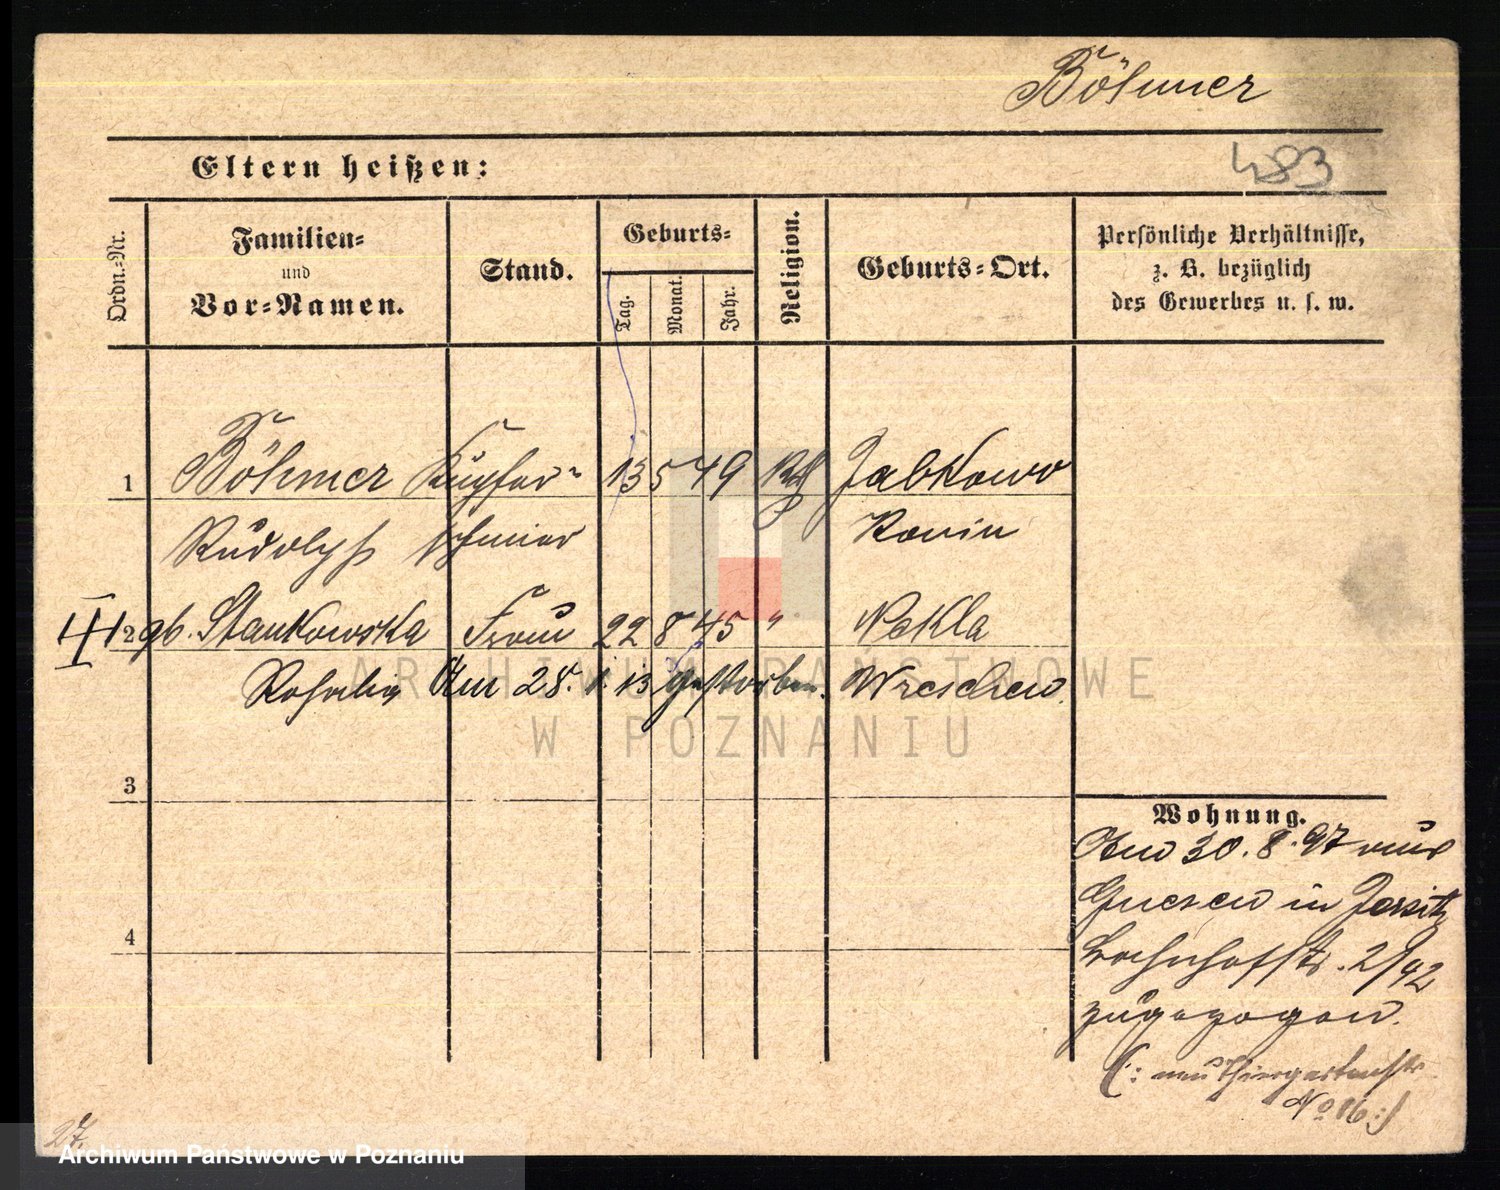 Böhmer
483
Eltern heißen:
Ordn.-Nr.
Familien-
und
Vor-Namen.
Stand.
Geburts-
Tag.
Monat.
Jahr.
Religion.
Geburts-Ort.
Persönliche Verhältnisse,
z. B. bezüglich
des Gewerbes u. s. w.
1 Böhmer Kupfer- 13 5 49 Jabkowo
Rudolph schmied
III 2 gb. Stankowska Frau 22 8 45 " Nekla
Am 28. 1. 13 gestorben. Wreschen
3
4
Wohnung.
Am 30. 8. 97 aus
Gnesen in Jersitz
Bahnhofstr. 2/42
zugezogen.
(: neu Thiergartenstr
No 16 :)
27.
ARCHIWUM PAŃSTWOWE
W POZNANIU
Archiwum Państwowe w Poznaniu